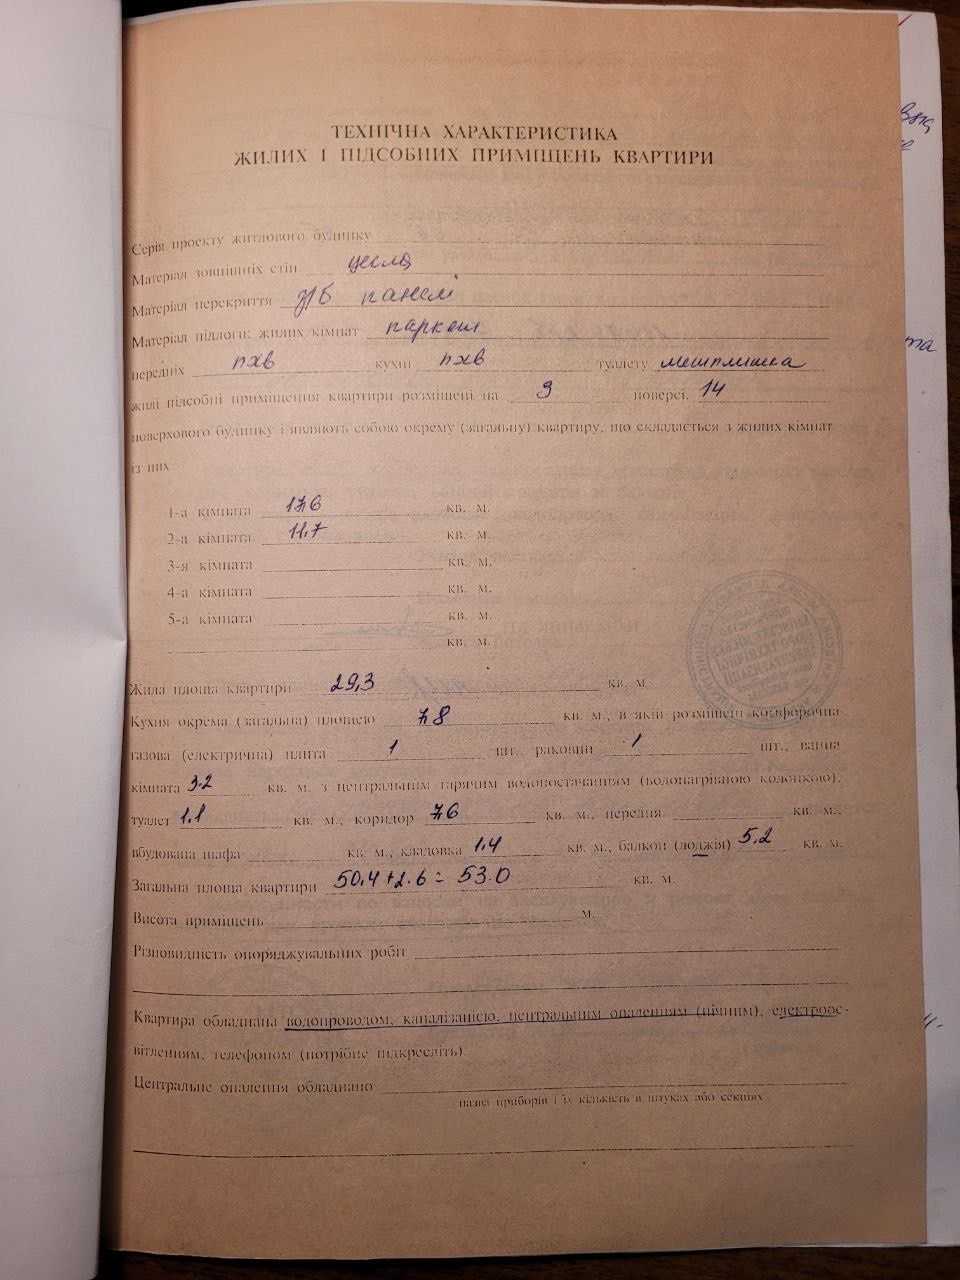 ТЕХНІЧНА ХАРАКТЕРИСТИКА
ЖИЛИХ І ПІДСОБНИХ ПРИМІЩЕНЬ КВАРТИРИ
Серія проєкту житлового будинку
Матеріал зовнішніх стін цегла
Матеріал перекриття з/б панелі
Матеріал підлоги: жилих кімнат паркет
передніх пхв кухні пхв туалету метплитка
жилі підсобні приміщення квартири розміщені на 9 поверсі, 14
поверхового будинку і являють собою окрему (загальну) квартиру, що складається з жилих кімнат
із них
1-а кімната 17.6 кв. м.
2-а кімната 11.7 кв. м.
3-я кімната кв. м.
4-а кімната кв. м.
5-а кімната кв. м.
кв. м.
Жила площа квартири 29,3 кв. м.
Кухня окрема (загальна) площею 7.8 кв. м., в якій розміщені конфорочна
газова (електрична) плита 1 шт., раковин 1 шт., ванна
кімната 3.2 кв. м. з центральним гарячим водопостачанням (водонагрівною колонкою),
туалет 1.1 кв. м., коридор 7.6 кв. м., передня кв. м.,
вбудована шафа кв. м., кладовка 1.4 кв. м., балкон (лоджія) 5.2 кв. м.
Загальна площа квартири 50.4+2.6=53.0 кв. м.
Висота приміщень м.
Різновидність опоряджувальних робіт
Квартира обладнана водопроводом, каналізацією, центральним опаленням (пічним), електроос-
вітленням, телефоном (потрібне підкресліть)
Центральне опалення обладнано
назва приборів і їх кількість в штуках або секціях